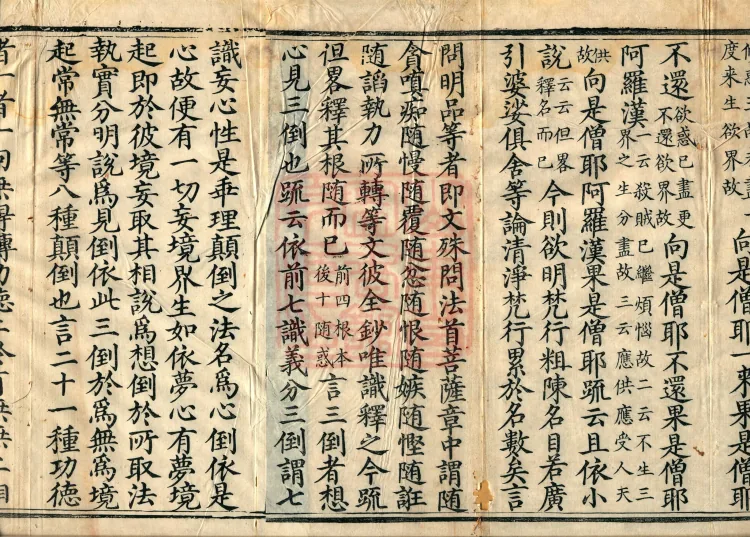 度来生欲界故向是僧耶一來果是僧耶
不還欲惑已盡更不還欲界故向是僧耶不還果是僧耶
阿羅漢一云殺賊已繼煩惱故二云不生三界之生分盡故三云應供應受人天
供故向是僧耶阿羅漢果是僧耶疏云且依小
說云云但畧釋名而已今則欲明梵行粗陳名目若廣
引婆娑俱舍等論清淨梵行累於名數矣言
問明品等者即文殊問法首菩薩章中謂随
貪嗔痴随慢随覆随忿随恨随嫉随慳随誑
随謟執力所轉等文彼全鈔唯識釋之今疏
但畧釋其根随而已前四根本後十随惑言三倒者想
心見三倒也疏云依前七識義分三倒謂七
識妄心性是乖理顛倒之法名爲心倒依是
心故便有一切妄境界生如依夢心有夢境
起即於彼境妄取其相說爲想倒於所取法
執實分明說爲見倒依此三倒於爲無爲境
起常無常等八種顛倒也言二十一種功德